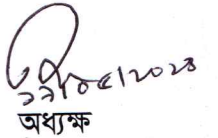 ২২/০৫/২০২৩
অধ্যক্ষ